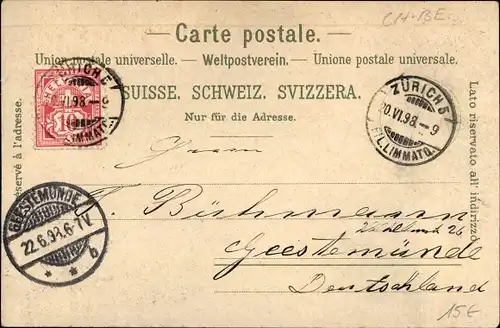 CH-BE
— Carte postale. —
Union postale universelle. — Weltpostverein. — Unione postale universale.
SUISSE. SCHWEIZ. SVIZZERA.
Nur für die Adresse.
réservé à l'adresse.
Lato riservato all' indirizzo.
10
ZÜRICH 5
20.VI.98.-9
FIL.LIMMATQ.
GEESTEMÜNDE
22.6.98.6-7V
* * b
Herrn
Bühmann
Geestemünde
Deutschland
15€